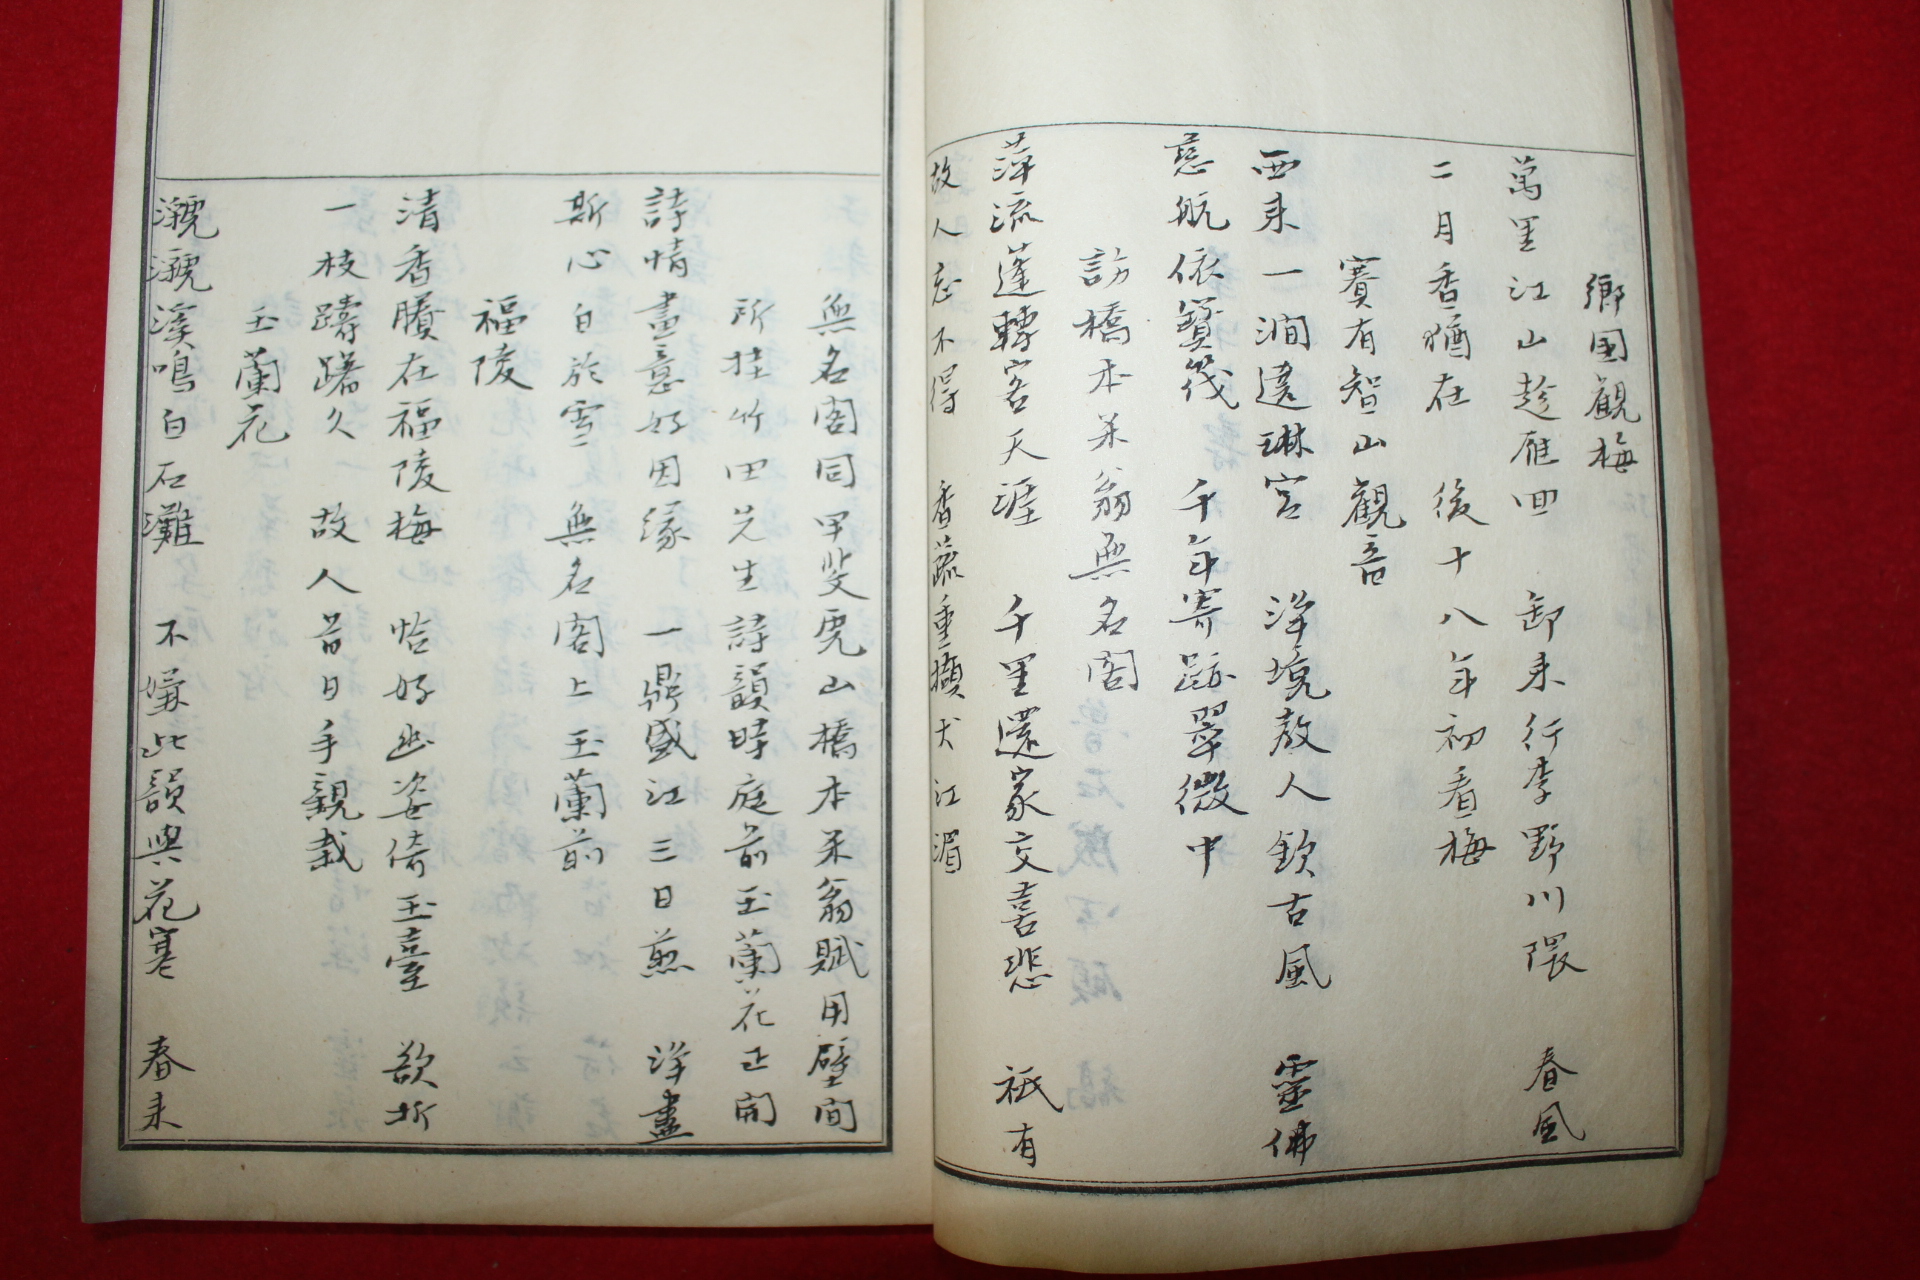 鄉國觀梅
萬里江山趁雁回 卸来行李野川隈 春風
二月香猶在 後十八年初看梅
賽有智山觀音
西来一澗遶琳宮 淨境教人欽古風 靈佛
慈航依寳筏 千年寄跡翠微中
訪橋本翁無名閣
萍流蓬轉客天涯 千里還家交喜悲 祇有
故人忘不得 香蔬重擷犬江湄
無名閣同甲斐虎山橋本翁賦用壁間
所挂竹田先生詩韻時庭前玉蘭花正開
詩情畫意好因緣 一鼎盛江三日煎 洋畫
斯心白於雪 無名閣上玉蘭前
福陵
清香賸在福陵梅 恰好幽姿倚玉臺 欲折
一枝躊躇久 故人昔日手親栽
玉蘭花
㶁㶁溪鳴白石灘 不嫌此韻與花寒 春来